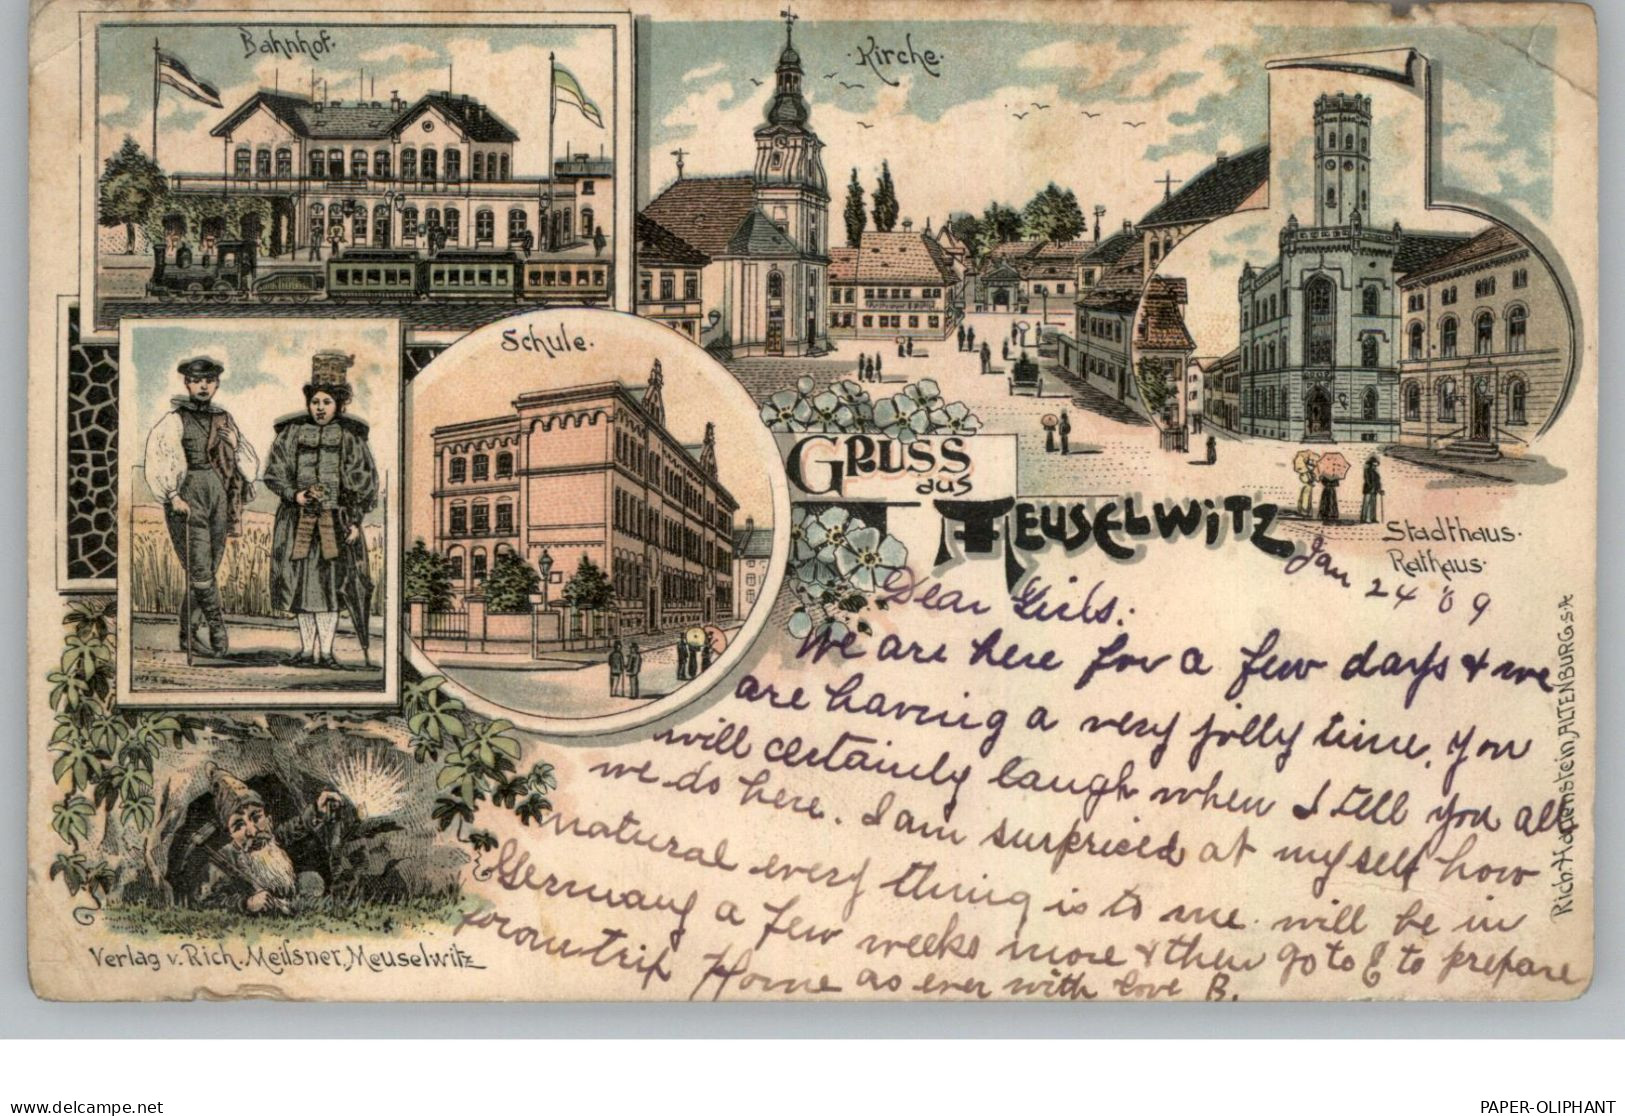 Bahnhof.
Kirche.
Schule.
GRUSS
aus
MEUSELWITZ
Stadthaus.
Rathaus.
Jan 24 '09
Dear Girls:
We are here for a few days & we
are having a very jolly time, you
will certainly laugh when I tell you all
we do here. I am surprised at myself how
natural every thing is to me. will be in
Germany a few weeks more & then go to E to prepare
for our trip Home as ever with love B.
Verlag v. Rich. Meißner, Meuselwitz
Rich. Hauenstein, ALTENBURG S-A
delcampe.net
PAPER-OLIPHANT